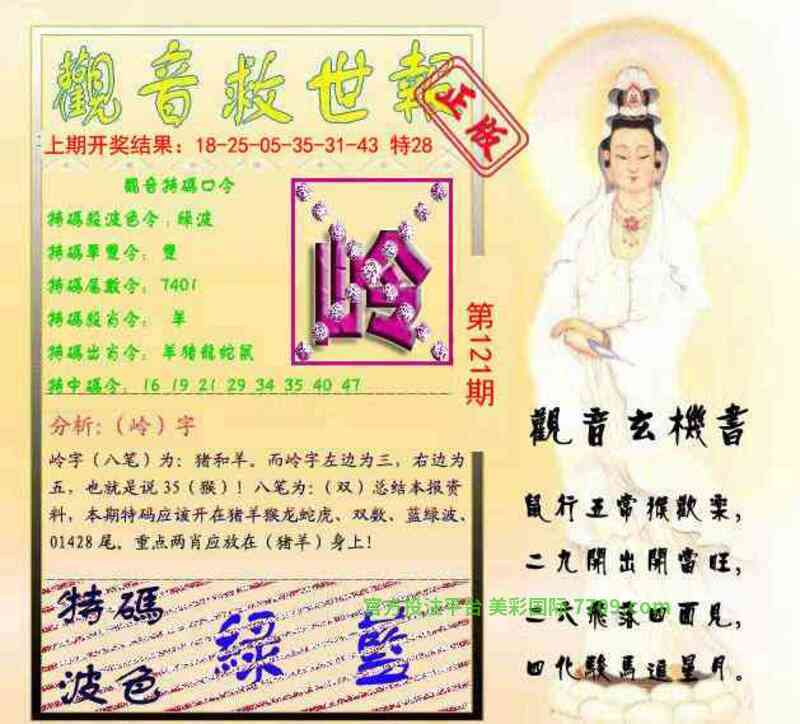 觀音救世報
正版
上期开奖结果：18-25-05-35-31-43 特28
觀音特碼口令
特碼殺波色令：綠波
特碼單雙令：雙
特碼尾數令：7401
特碼殺肖令： 羊
特碼出肖令：羊猪龍蛇鼠
特中碼令：16 19 21 29 34 35 40 47
岭
第121期
分析：（岭）字
岭字（八笔）为：猪和羊。而岭字左边为三，右边为
五，也就是说35（猴）！八笔为：（双）总结本报资
料，本期特码应该开在猪羊猴龙蛇虎、双数、蓝绿波、
01428尾。重点两肖应放在（猪羊）身上！
特碼
波色
綠 藍
官方投注平台 美彩国际 7769.com
觀音玄機書
鼠行五常猴歡樂，
二九開出開當旺，
飛落四面見，
四化駿馬追星月。